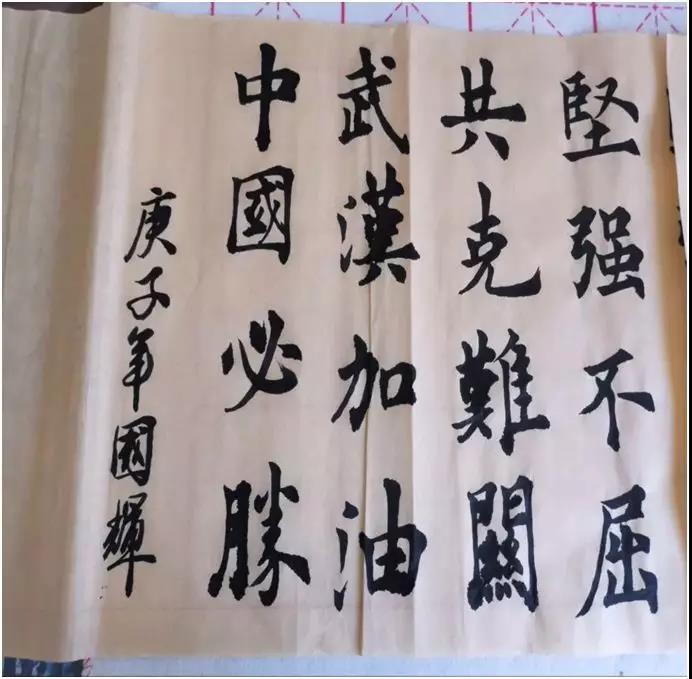 堅强不屈
共克難關
武漢加油
中國必勝
庚子年國輝